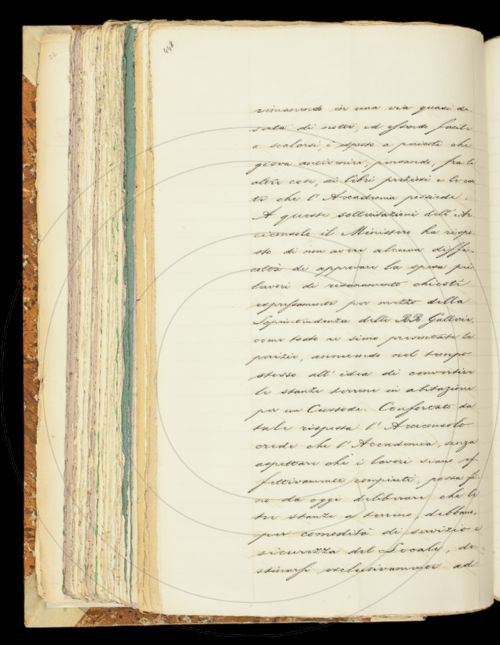 448
rimanendo in una via quasi de-
serta di notte, ed essendo facile
a scalarsi, è esposta a pericoli che
giova antivenire, pensando, fra le
altre cose, ai libri preziosi e
che l'Accademia possiede.
A queste sollecitazioni dell'Ar-
ciconsolo il Ministero ha rispo-
sto di non avere alcuna diffi-
coltà di approvare la spesa pei
lavori di risarcimento chiesti
espressamente per mezzo della
Soprintendenza delle RR. Gallerie,
come tosto ne siano presentate le
perizie, annuendo nel tempo
stesso all'idea di convertire
le stanze terrene in abitazione
per un Custode. Confortato da
tale risposta l'Arciconsolo
crede che l'Accademia, senza
aspettare che i lavori siano ef-
fettivamente compiuti, possa fi-
no da oggi deliberare che le
tre stanze a terreno debbano,
per comodità di servizio e
sicurezza del Locale, de-
stinarsi esclusivamente ad